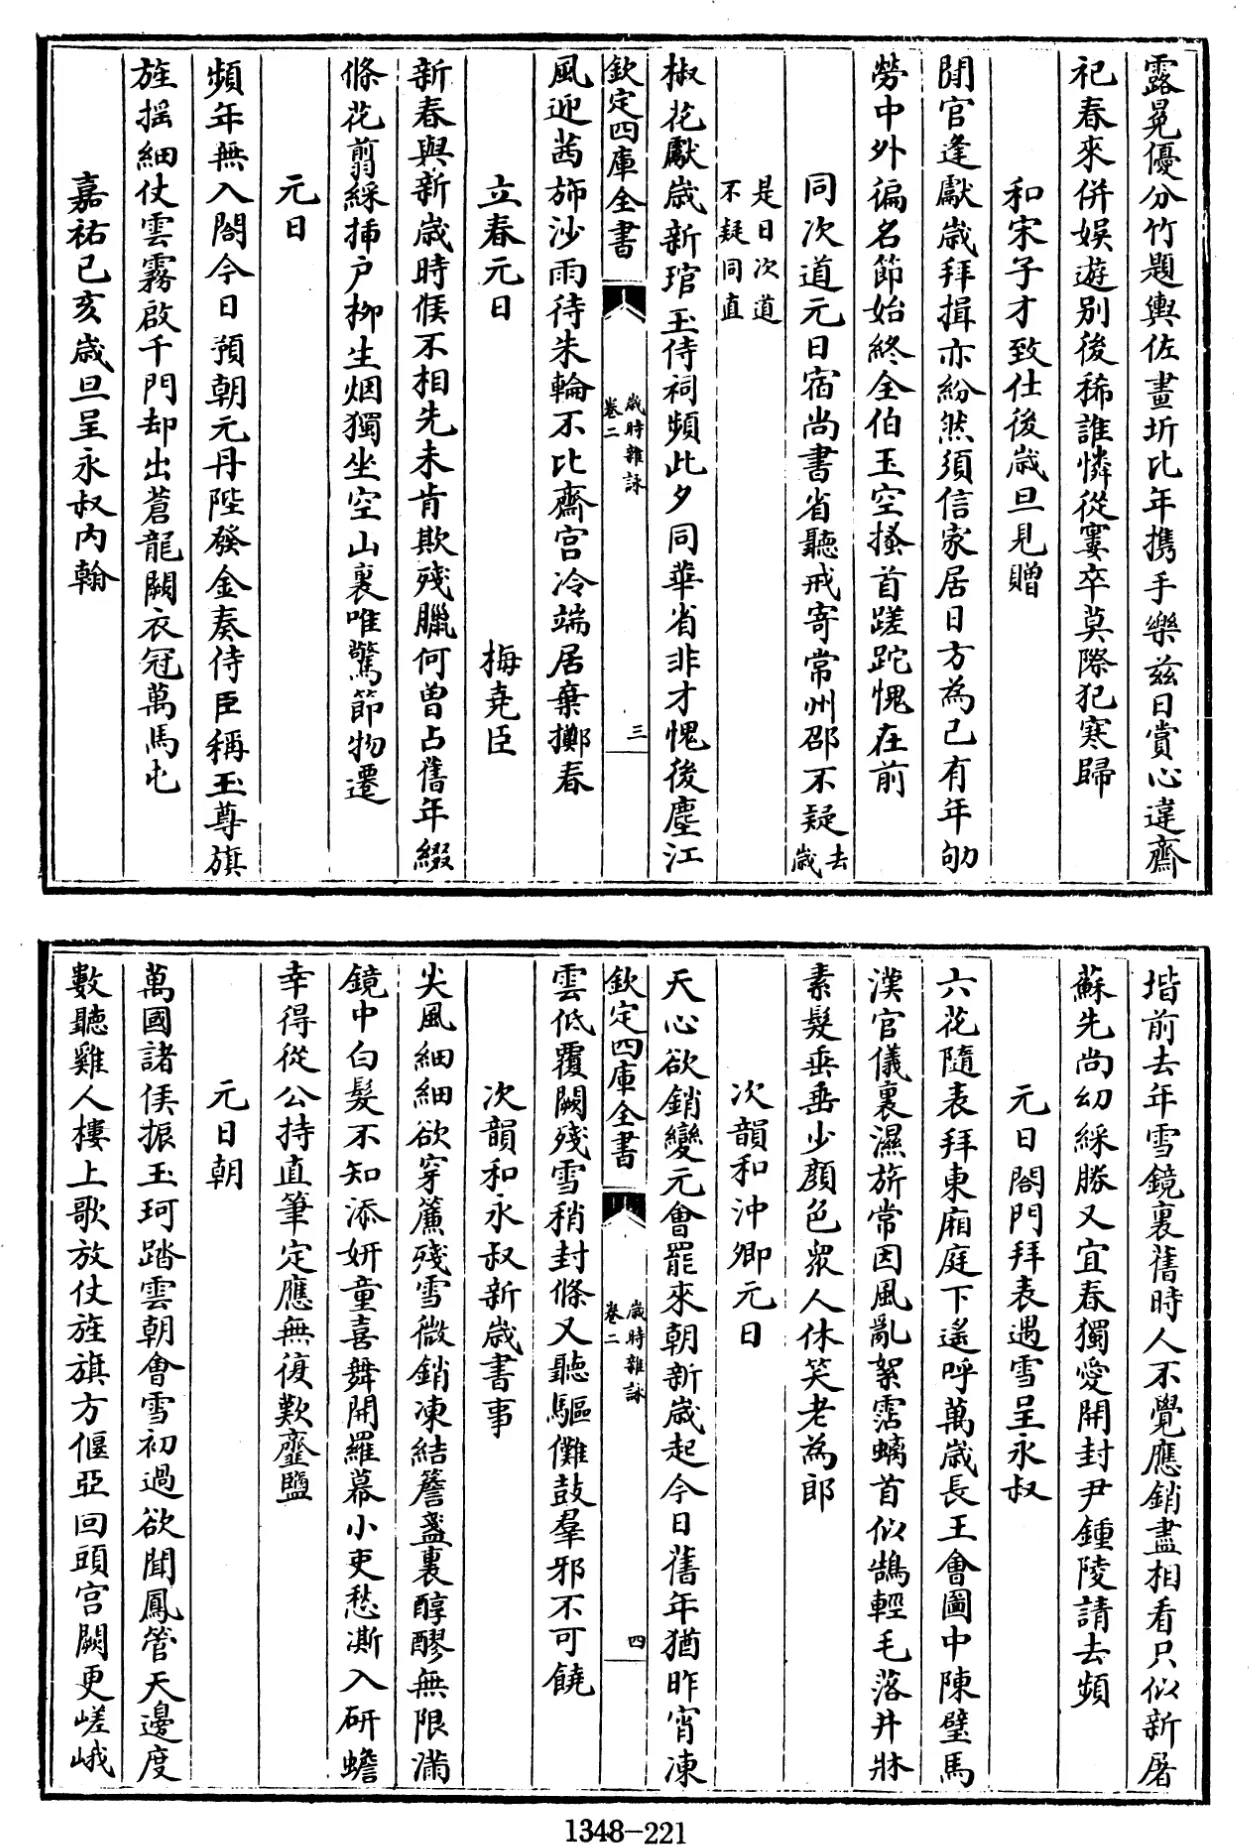 露冕優分竹題輿佐畫圻比年携手樂兹日賞心違齋
祀春來併娱遊别後稀誰憐從寠卒莫際犯寒歸
和宋子才致仕後歳旦見贈
閒官逢獻歳拜揖亦紛然須信家居日方為己有年劬
勞中外徧名節始終全伯玉空搔首蹉跎愧在前
同次道元日宿尚書省聽戒寄常州邵不疑去歳
是日次道
不疑同直
椒花獻歳新琯玉侍祠頻此夕同華省非才愧後塵江
欽定四庫全書
歳時雜詠
卷二
三
風迎茜斾沙雨待朱輪不比齋宫冷端居棄擲春
立春元日
梅堯臣
新春與新歳時候不相先未肯欺殘臘何曾占舊年綴
條花翦綵揷户栁生烟獨坐空山裏唯驚節物遷
元日
頻年無入閤今日預朝元丹陛發金奏侍臣稱玉尊旗
旌摇細仗雲霧啟千門却出蒼龍闕衣冠萬馬屯
嘉祐己亥歳旦呈永叔内翰
堦前去年雪鏡裏舊時人不覺應銷盡相看只似新屠
蘇先尚幼綵勝又宜春獨愛開封尹鍾陵請去頻
元日閤門拜表遇雪呈永叔
六花隨表拜東廂庭下遥呼萬歳長王會圖中陳璧馬
漢官儀裏濕旂常因風亂絮霑螭首似鵠輕毛落井牀
素髪垂垂少顔色衆人休笑老為郎
次韻和沖卿元日
天心欲銷變元會罷來朝新歳起今日舊年猶昨宵凍
欽定四庫全書
歳時雜詠
卷二
四
雲低覆闕殘雪稍封條又聽驅儺鼓羣邪不可饒
次韻和永叔新歳書事
尖風細細欲穿簾殘雪微銷凍結簷盞裏醇醪無限滿
鏡中白髮不知添妍童喜舞開羅幕小吏愁澌入研蟾
幸得從公持直筆定應無復歎虀鹽
元日朝
萬國諸侯振玉珂踏雲朝會雪初過欲聞鳳管天邊度
數聽雞人樓上歌放仗旌旗方偃亞回頭宫闕更嵯峨
1348-221